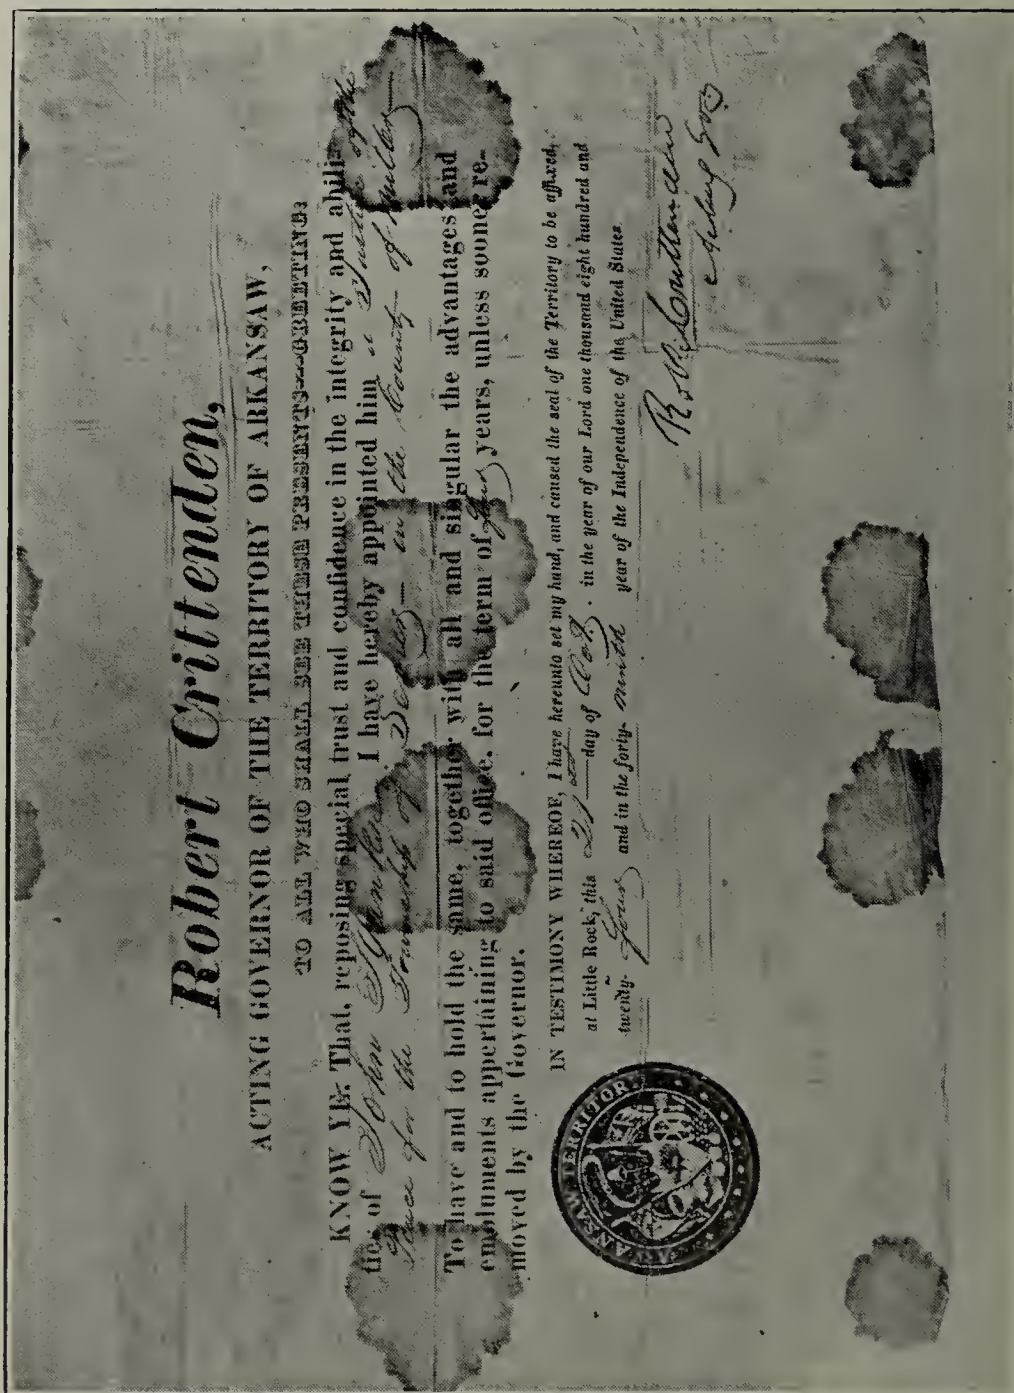 Robert Crittenden,
ACTING GOVERNOR OF THE TERRITORY OF ARKANSAW,
TO ALL WHO SHALL SEE THESE PRESENTS—GREETING:
KNOW YE: That, reposing special trust and confidence in the integrity and abili-
ties of John I have hereby appointed him a Justice of the
Peace for the Township of in the County of Miller
To have and to hold the same, together with all and singular the advantages and
emoluments appertaining to said office, for the term of years, unless sooner re-
moved by the Governor.
IN TESTIMONY WHEREOF, I have hereunto set my hand, and caused the seal of the Territory to be affixed,
at Little Rock, this 21st day of Oct. in the year of our Lord one thousand eight hundred and
twenty-four and in the forty-ninth year of the Independence of the United States.
Robt Crittenden
Acting Gov
ARKANSAW TERRITORY